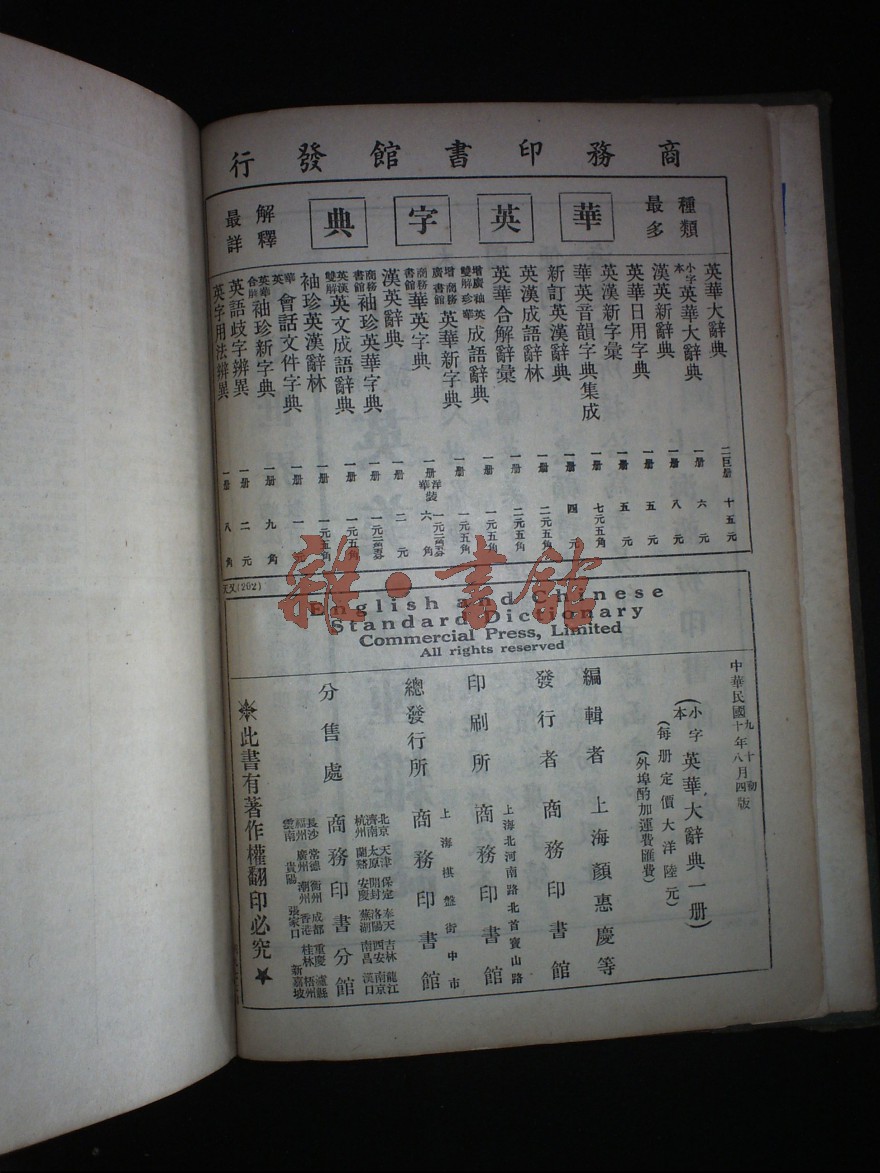 商務印書館發行
種類最多
華英字典
解釋最詳
英華大辭典 二巨册 十五元
小字本 英華大辭典 一册 六元
漢英新辭典 一册 八元
英華日用字典 一册 五元
英漢新字彙 一册 五元
華英音韻字典集成 一册 七元五角
新訂英漢辭典 一册 四元
英漢成語辭林 一册 二元五角
英華合解辭彙 一册 二元五角
增廣雙解 袖珍英華 成語辭典 一册 一元五角
增廣 商務書館 英華新字典 一册 一元五角
商務書館 華英字典 一册 洋裝 一元二角 華裝 六角
漢英辭典 一册 二元
商務書館 袖珍英華字典 一册
英漢雙解 英文成語辭典 一册 一元五角
袖珍英漢辭林 一册 一元五角
華英 會話文件字典 一册 一元
英華合解 袖珍新字典 一册 九角
英語歧字辨異 一册 二元
英字用法辨異 一册 八角
天又(202)
雜·書館
English and Chinese
Standard Dictionary
Commercial Press, Limited
All rights reserved
中華民國
九
十年八月四版
(小字本 英華大辭典一册)
(每册定價大洋陸元)
(外埠酌加運費匯費)
編輯者 上海顏惠慶等
發行者 商務印書館
印刷所 上海北河南路北首寶山路 商務印書館
總發行所 上海棋盤街中市 商務印書館
分售處 商務印書分館
北京 天津 保定 奉天 吉林 龍江
濟南 太原 開封 洛陽 西安 南京
杭州 蘭谿 安慶 蕪湖 南昌 漢口
長沙 常德 衡州 成都 重慶 瀘縣
福州 廣州 潮州 香港 桂林 梧州
雲南 貴陽 張家口 新嘉坡
※此書有著作權翻印必究★